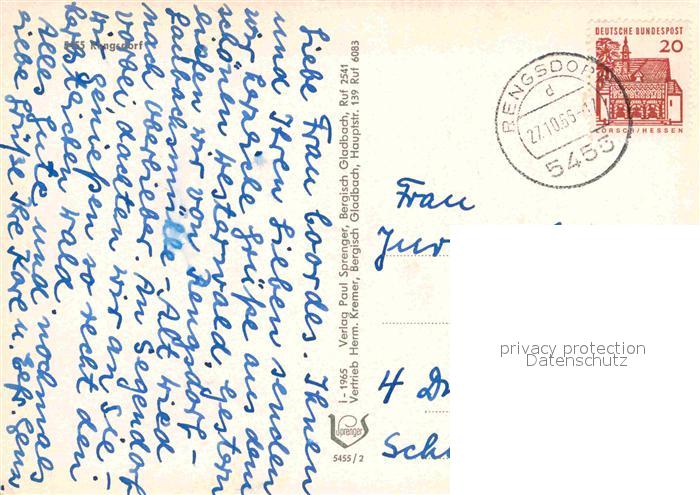 5455 Rengsdorf
Liebe Frau Coordes. Ihnen
und Ihren Lieben senden
wir herzliche Grüße aus dem
schönen Westerwald. Gestern
gingen wir von Rengsdorf -
Laubachsmühle - Alt Wied
nach Oberbieber. An Segendorf
vorbei dachten wir an Sie -
wir genießen so recht den
herbstlichen Wald
Alles Gute und nochmals
liebe Grüße Ihre
i - 1965 Verlag Paul Sprenger, Bergisch Gladbach, Ruf 2541
Vertrieb Herm. Kremer, Bergisch Gladbach, Hauptstr. 139 Ruf 6083
Sprenger
5455/2
DEUTSCHE BUNDESPOST
20
LORSCH/HESSEN
RENGSDORF
d
27.10.66
5455
Frau
4
privacy protection
Datenschutz